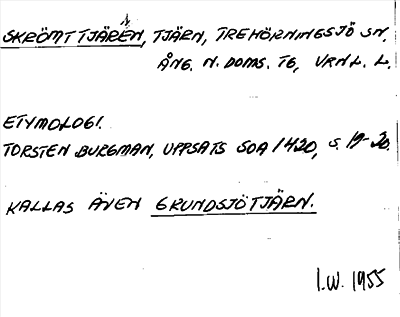 SKRÖMTTJÄREN, TJÄRN, TREHÖRNINGSJÖ SN,
ÅNG. N. DOMS. TG, VRNL. L.
ETYMOLOGI.
TORSTEN BURGMAN, UPPSATS SOA 1420, S. 19-20.
KALLAS ÄVEN GRUNDSJÖTJÄRN.
I.W. 1955